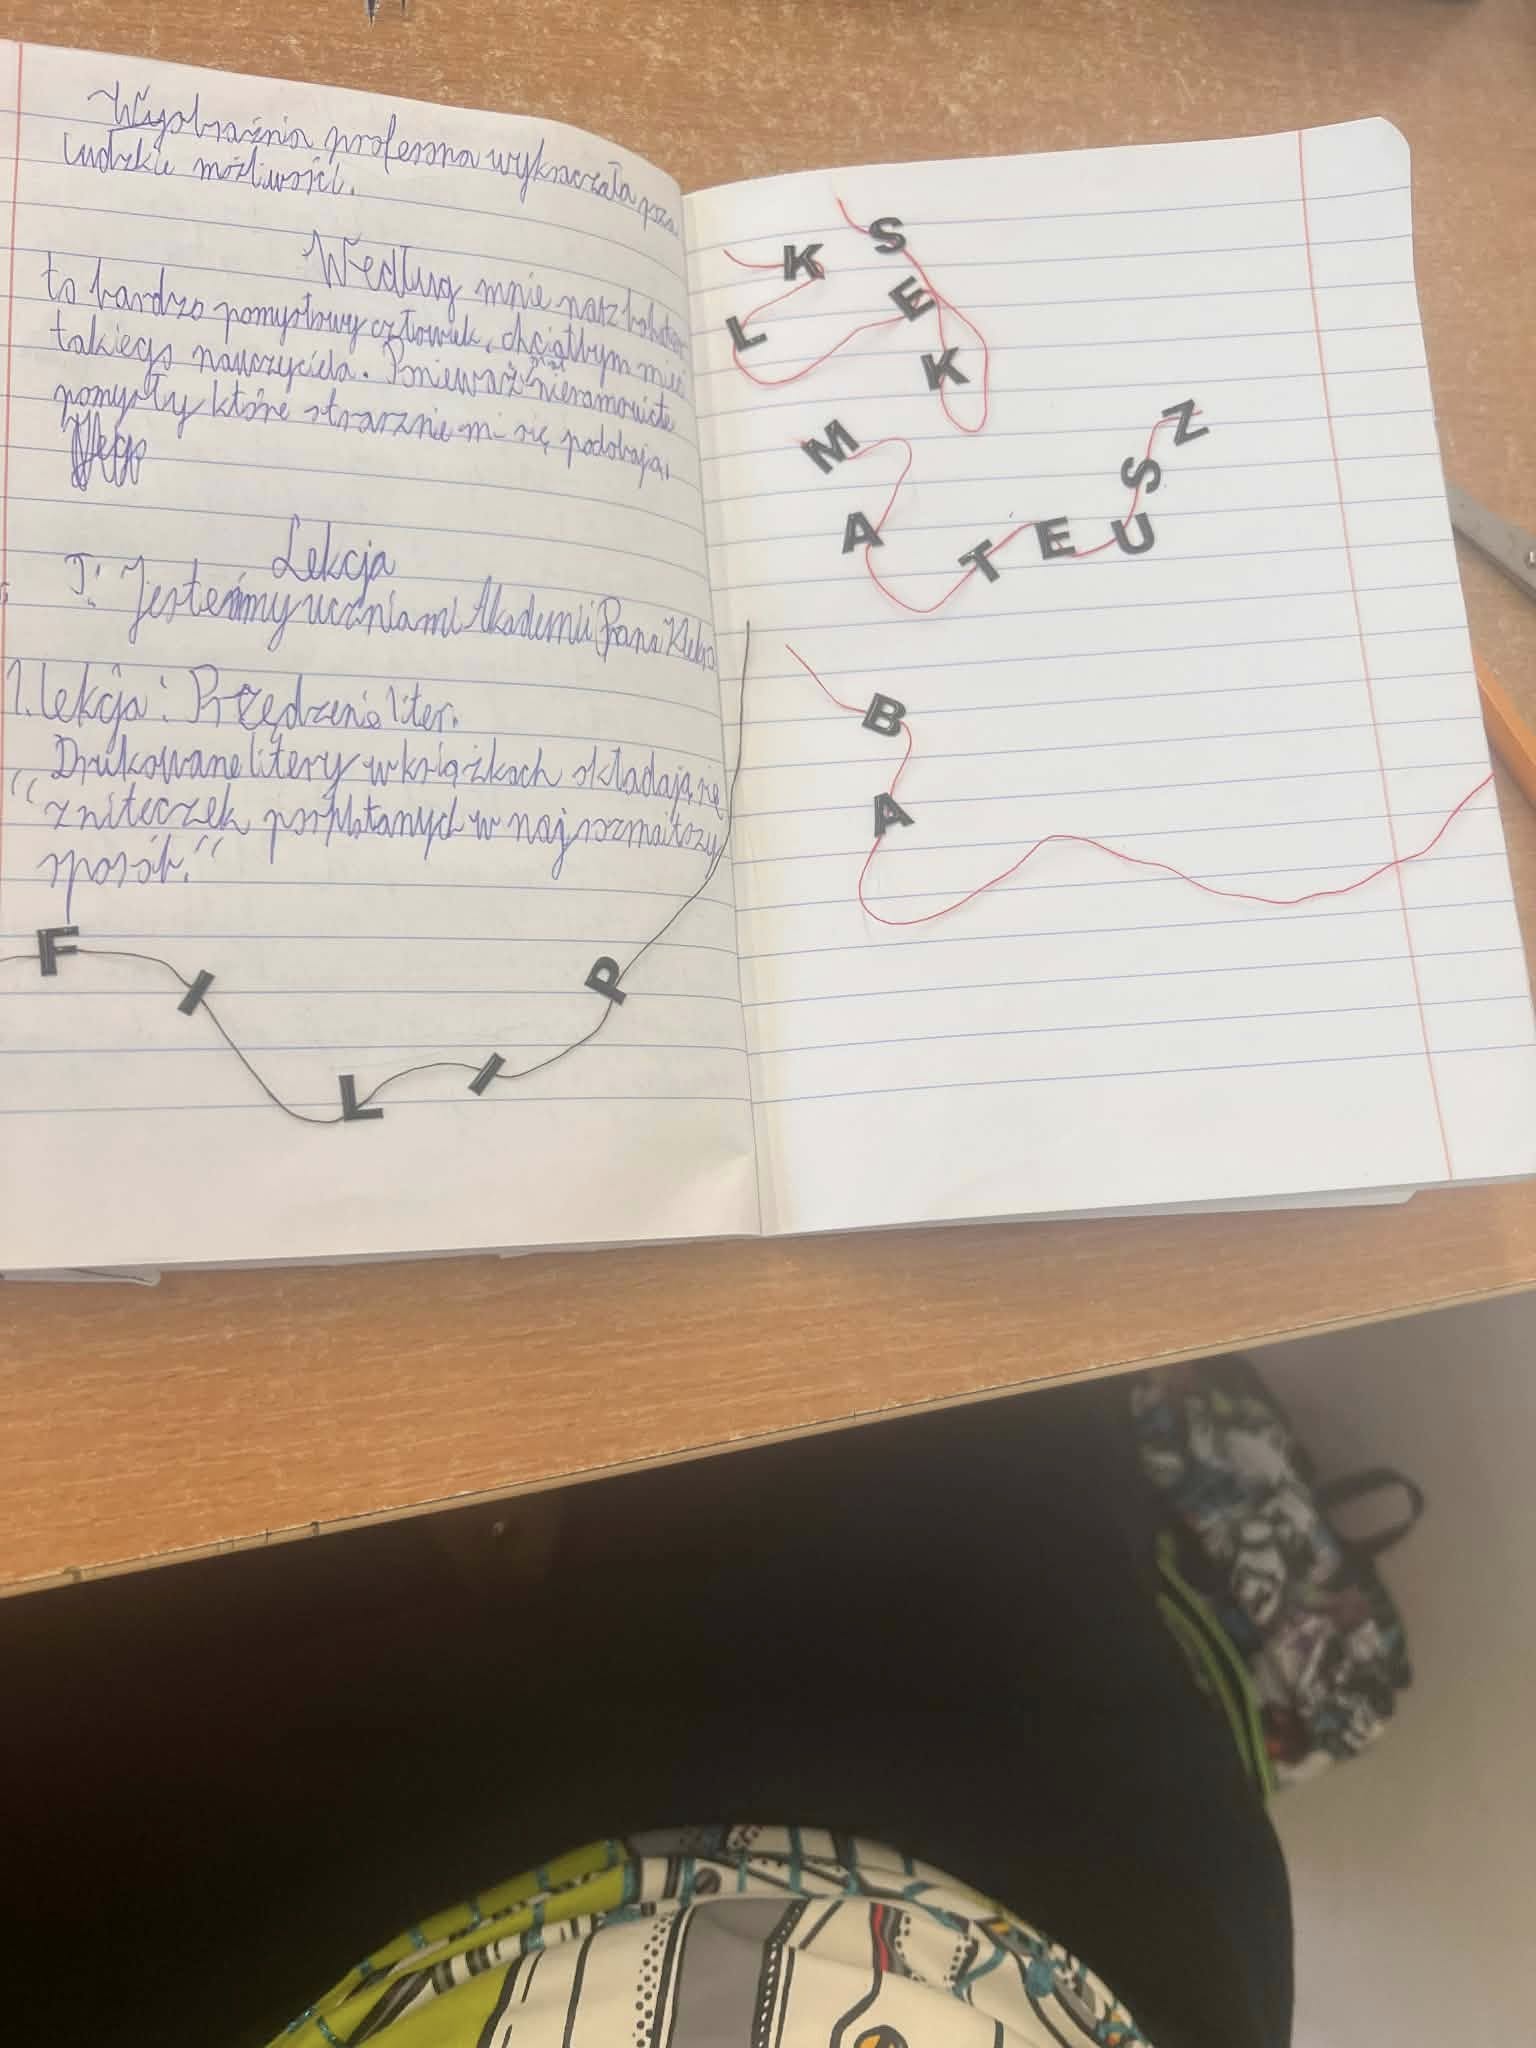 Wyobraźnia profesora wykraczała poza
ludzkie możliwości.
Według mnie nasz bohater
to bardzo pomysłowy człowiek, chciałbym mieć
takiego nauczyciela. Ponieważ ma niesamowite
pomysły które strasznie mi się podobają.
Lekcja
T: Jesteśmy uczniami Akademii Pana Kleksa
1. lekcja: Przędzenie liter.
Drukowane litery w książkach składają się
"z niteczek poplątanych w najrozmaitszy
sposób."
FILIP
KLEKS
MATEUSZ
BA